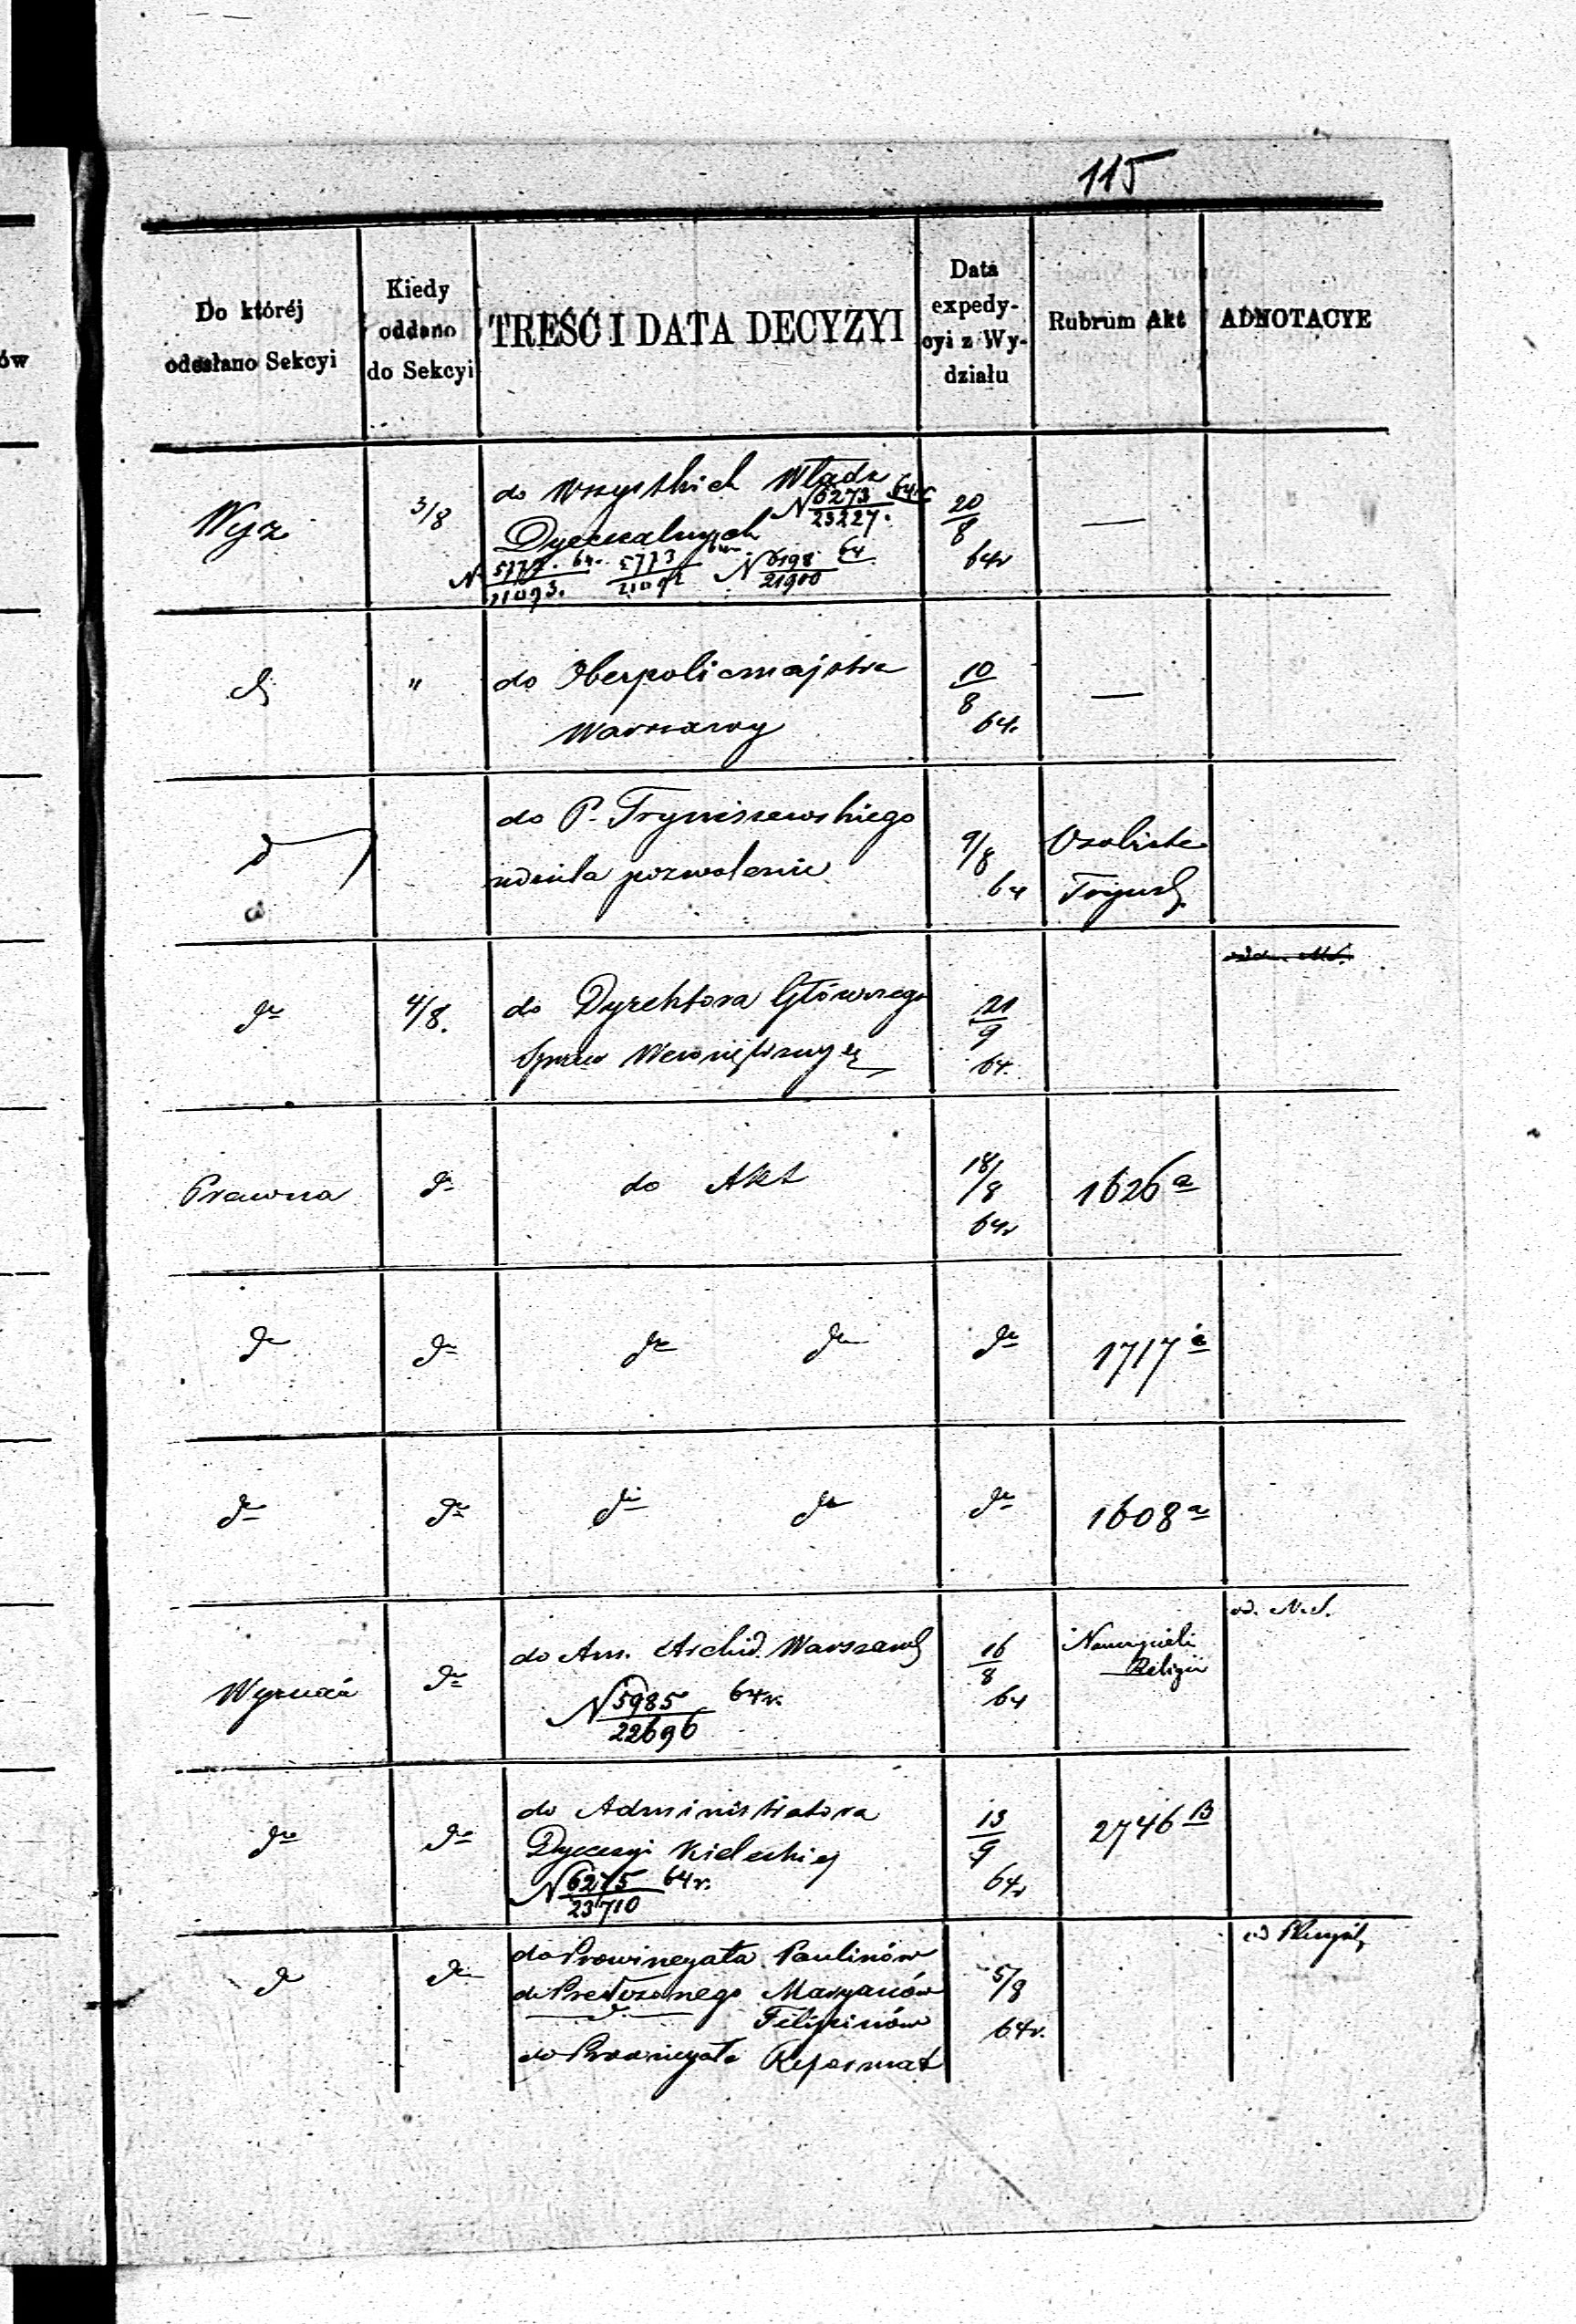 115
Do któréj
odesłano Sekcyi
Kiedy
oddano
do Sekcyi
TREŚĆ I DATA DECYZYI
Data
expedy-
cyi z Wy-
działu
Rubrum Akt
ADNOTACYE
ów
Wyz.
3/8
do Wszystkich Władz
N 6273 64r
23227.
Dyecezalnych
N. 5777. 64. 5773 64r N 6198 64
21093. 21092 21900
20
8
64r
—
"
do Oberpolicmajstra
Warszawy
10
8
64.
—
do P. Tryniszewskiego
udziela pozwolenie
9/8
64
Osobiste
dto
4/8.
do Dyrektora Głównego
Spraw Wewnętrznych
21
9
64.
Prawna
dto
do Akt
18/8
64r
1626 a
dto
dto
dto dto
dto
1717 a
dto
dto
dto dto
dto
1608 a
Wyznań
dto
do Am. Archid. Warszaws
N 5985 64r.
22696
16
8
64
Nauczyciele
Religii
od. N.S.
dto
dto
do Administratora
Dyecezyi Kieleckiej
N 6275 64r.
23710
13
9
64r
2746 B
dto
dto
do Prowincyała Paulinów
do Przełożonego Maryanów
d Filipinów
do Prowincyała Reformat
5/8
64r.